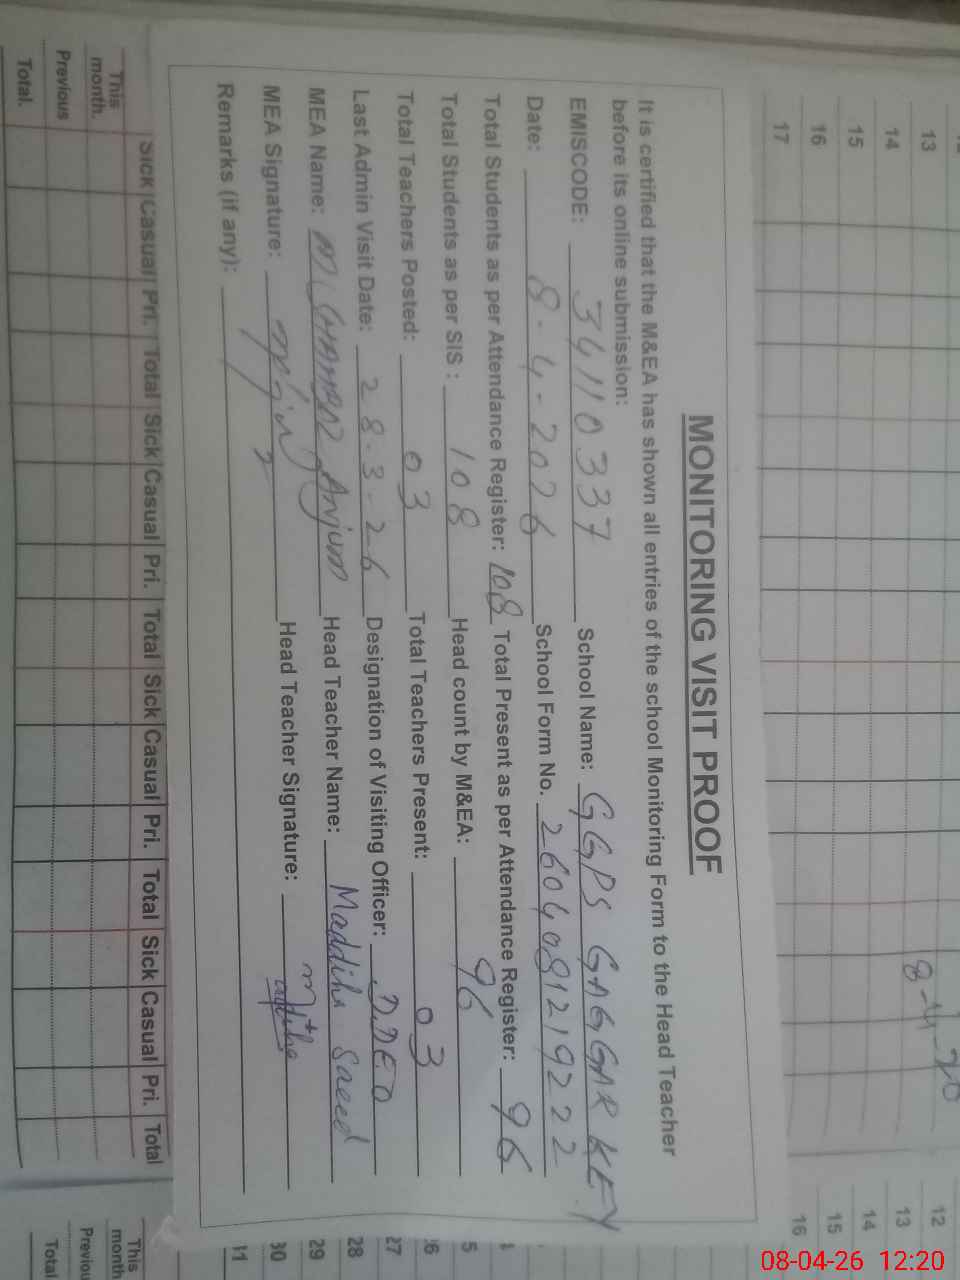 MONITORING VISIT PROOF
It is certified that the M&EA has shown all entries of the school Monitoring Form to the Head Teacher
before its online submission:
EMISCODE: 34110337 School Name: GGPS GAGGAR KEY
Date: 8-4-2026 School Form No. 2604081219222
Total Students as per Attendance Register: 108 Total Present as per Attendance Register: 96
Total Students as per SIS : 108 Head count by M&EA: 96
Total Teachers Posted: 03 Total Teachers Present: 03
Last Admin Visit Date: 28-3-26 Designation of Visiting Officer: D.DEO
MEA Name: Anjum Head Teacher Name: Maddiha Saeed
MEA Signature: Head Teacher Signature:
Remarks (if any):
Sick Casual Pri. Total Sick Casual Pri. Total Sick Casual Pri. Total Sick Casual Pri. Total
This month.
Previous
Total.
13
14
15
16
17
8-4-20
12
13
14
15
16
27
28
29
30
31
This month
Previou
Total
08-04-26 12:20